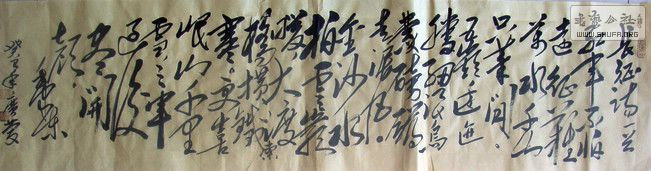 書藝公社
WWW.SHUFA.ORG
长征诗一首
红军不怕
远征难
万水千山
只等闲
五岭逶迤
腾细浪乌
蒙磅礴
走泥丸
金沙水
拍云崖
暖大渡
桥横铁索
寒更喜
岷山千里
雪三军
过后
尽开
颜